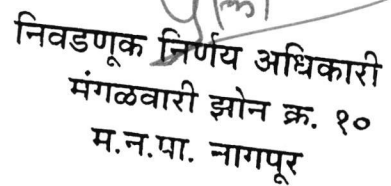 निवडणूक निर्णय अधिकारी
मंगळवारी झोन क्र. १०
म.न.पा. नागपूर